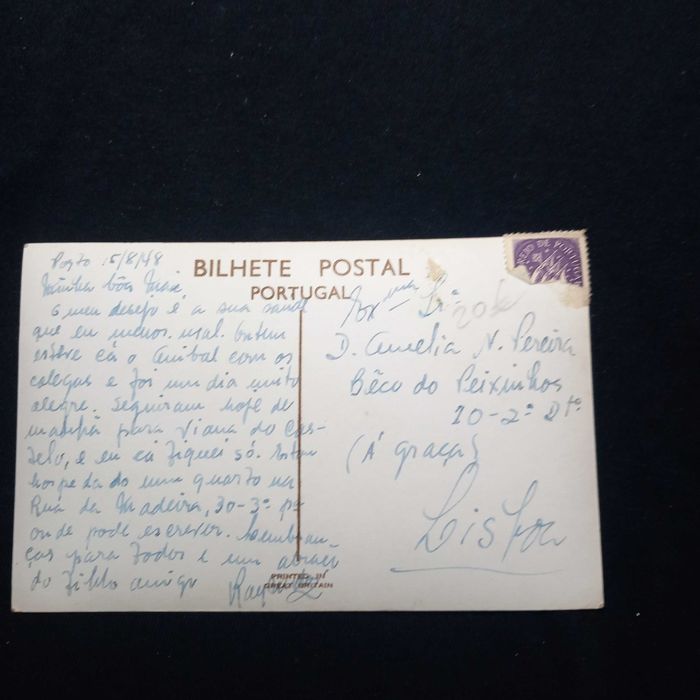 Porto 15/8/48
BILHETE POSTAL
PORTUGAL
Minha bôa Mãe
O meu desejo é a sua saude
que eu menos mal. Ontem
estêve cá o Anibal com os
colegas e foi um dia muito
alegre. Seguiram hoje de
manhã para Viana do Cas-
telo, e eu cá fiquei só. Estou
hospedado num quarto na
Rua da Madeira, 30-3º pa
onde pode escrever. Lembran-
ças para todos e um abraço
do filho amigo
PRINTED IN
GREAT BRITAIN
Exma Srª
D. Amelia N. Pereira
Bêco do Peixinhos
10-2º Dto
(Á graça)
Lisboa